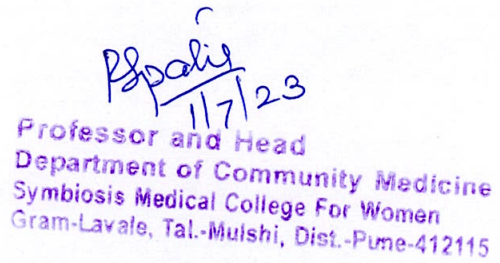 1/7/23
Professor and Head
Department of Community Medicine
Symbiosis Medical College For Women
Gram-Lavale, Tal.-Mulshi, Dist.-Pune-412115